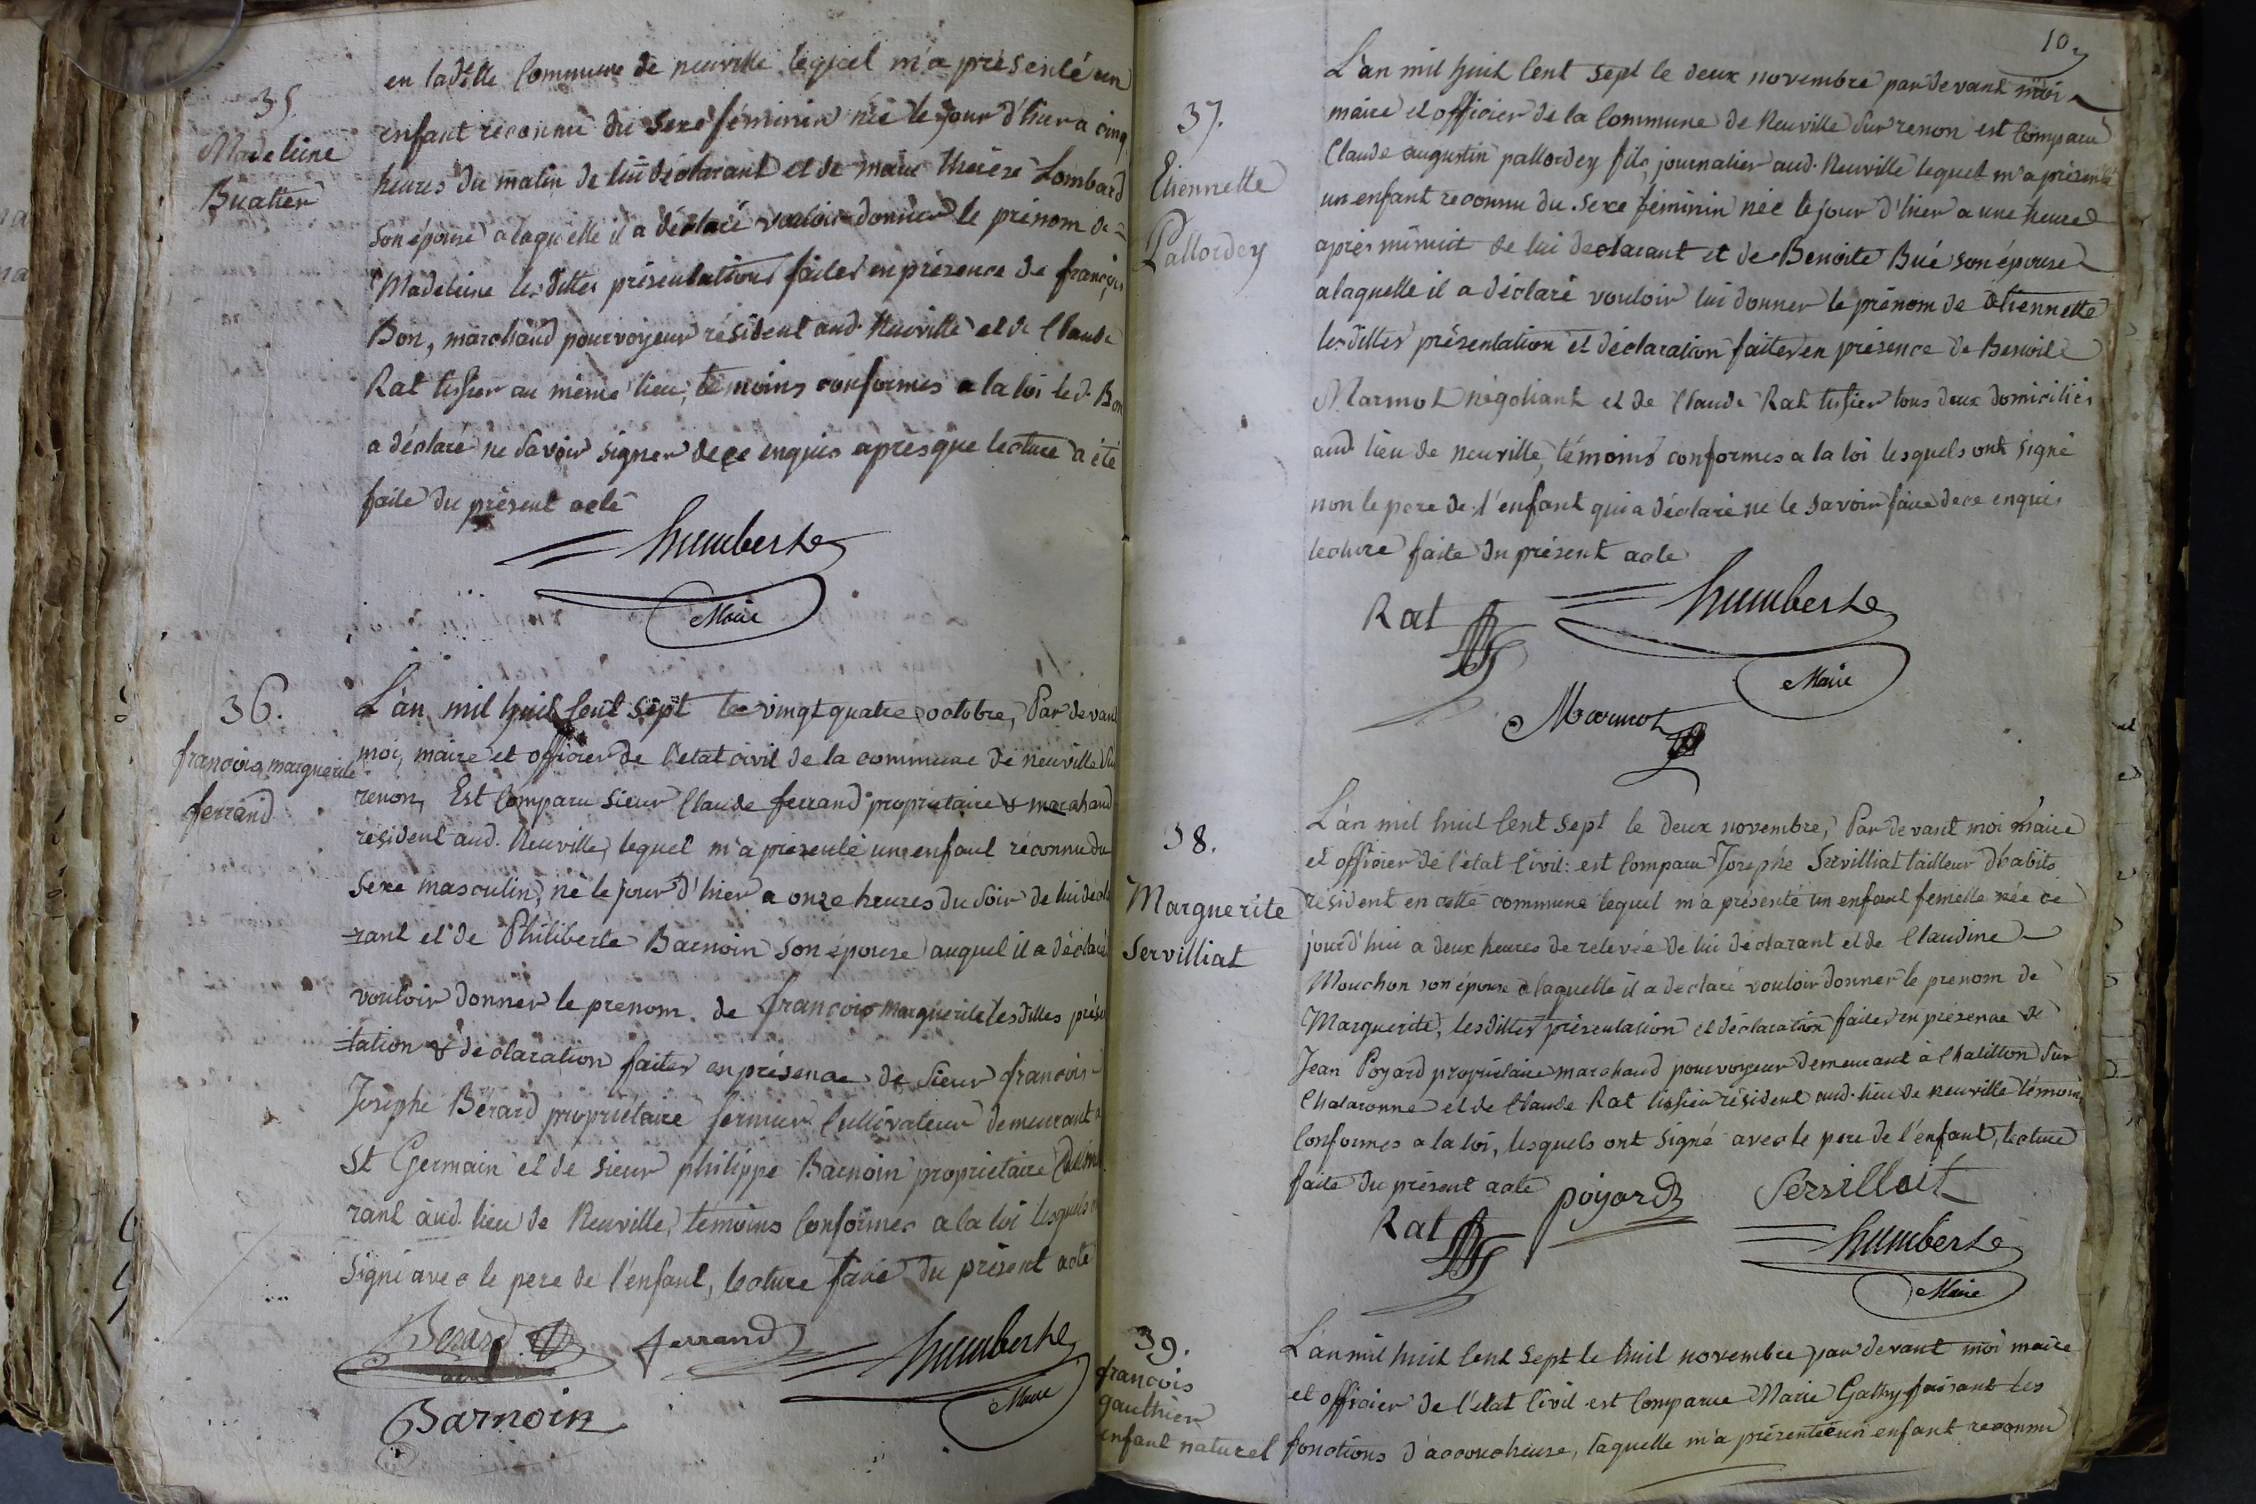 35.
Madeleine
Buatier
en ladette Commune de neuville lequel m'a présenté un
enfant reconnu du sexe féminin née le jour d'hier a cinq
heures du matin de lui déclarant et de marie thérèse Lombard
son épouse a laquelle il a déclaré vouloir donner le prénom de
Madeleine les dittes présentations faites en présence de françois
Bon, marchand pourvoyeur résident aud. Neuville et de Claude
Rat tissier au même lieu, témoins conformes a la loi led. Bon
a déclaré ne savoir signer de ce enquis après que lecture a été
faite du présent acte
humberte
Maire
36.
francois marguerite
ferrand
L'an mil huit Cent sept le vingt quatre octobre, Par devant
moi, maire et officier de l'etat civil de la commune de neuville sur
renon, Est Comparu sieur Claude ferrand proprietaire & marchand
résident aud. Neuville, lequel m'a présenté un enfant réconnu du
sexe masculin, né le jour d'hier a onze heures du soir de lui décla
-rant et de Philiberte Barnoin son épouse auquel il a déclaré
vouloir donner le prenom de francois marguerite lesdittes présen
-tation & déclaration faites en présence de sieur francois
Josephe Bérard propriétaire fermier Cultivateur demeurant a
St Germain et de sieur philippe Barnoin proprietaire demeu
rant aud. lieu de Neuville, témoins Conformes a la loi lesquels
signé avec le pere de l'enfant, lecture faite du présent acte
Berard
ferrand
humberte
Maire
Barnoin
10
37.
Etiennette
Pallordey
L'an mil huit Cent sept le deux novembre par devant moi
maire et officier de la Commune de Neuville sur renon est Comparu
Claude augustin pallordey fils, journalier aud. Neuville lequel m'a présenté
un enfant reconnu du sexe féminin née le jour d'hier a une heure
après minuit de lui declarant et de Benoite Bué son épouse
a laquelle il a déclaré vouloir lui donner le prénom de Etiennette
les dittes présentation et déclaration faites en présence de Benoit
Marmot négotiant et de Claude Rat tissier tous deux domiciliés
aud. lieu de neuville, témoins conformes a la loi lesquels ont signé
non le pere de l'enfant qui a déclaré ne le savoir faire de ce enquis
lecture faite du présent acte
Rat
humberte
Maire
Marmot
38.
Marguerite
Servilliat
L'an mil huit Cent sept le deux novembre, Par devant moi maire
et officier de l'état Civil: est Comparu Josephe Servilliat tailleur d'habits
résident en cette commune lequel m'a présenté un enfant femelle née ce
jourd'hui a deux heures de relevée de lui déclarant et de Claudine
Mouchon son épouse a laquelle il a déclaré vouloir donner le prenom de
Marguerite, les dittes présentation et déclaration faites en présence de
Jean Poyard propriétaire marchand pourvoyeur demeurant à Chatillon sur
Chalaronne et de Claude Rat tissier résident aud. lieu de neuville témoins
Conformes a la loi, lesquels ont signé avec le pere de l'enfant, lecture
faite du présent acte
poyard
Servilliat
Rat
humberte
Maire
39.
francois
gauthier
enfant naturel
L'an mil huit Cent sept le huit novembre par devant moi maire
et officier de l'état Civil est Comparue Marie Gathy faisant les
fonctions d'accoucheuse, laquelle m'a présenté un enfant reconnu